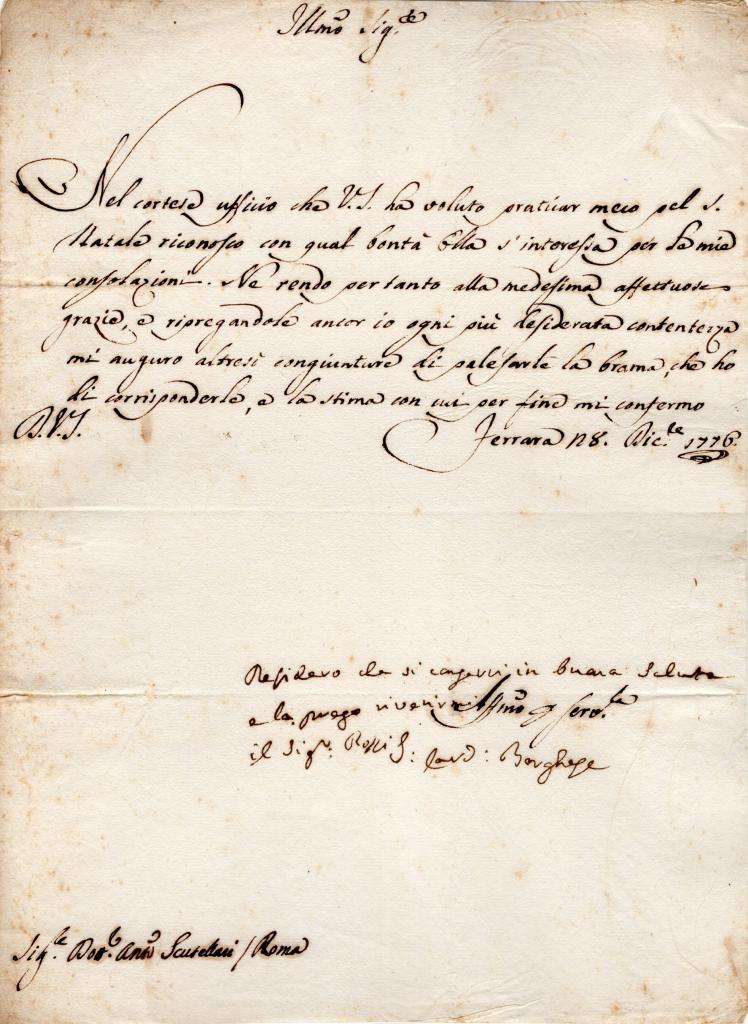 Illmõ Sig.re
Nel cortese ufficio che V.S. ha voluto praticar meco pel S.
Natale riconosco con qual bontà Ella s'interessa per le mie
consolazioni. Ne rendo per tanto alla medesima affettuose
grazie, e ripregandole ancor io ogni più desiderata contentezza
mi auguro altresì congiunture di palesarle la brama, che ho
di corrisponderle, e la stima con cui per fine mi confermo
D.V.S. Ferrara 28. Dic.re 1776.
Desidero che si conservi in buona salute
e la prego riverirmi Affmõ Serv.re
il Sig.r Rossi S: Card: Borghese
Sig.re Dott.r Antõ Scutellari / Roma